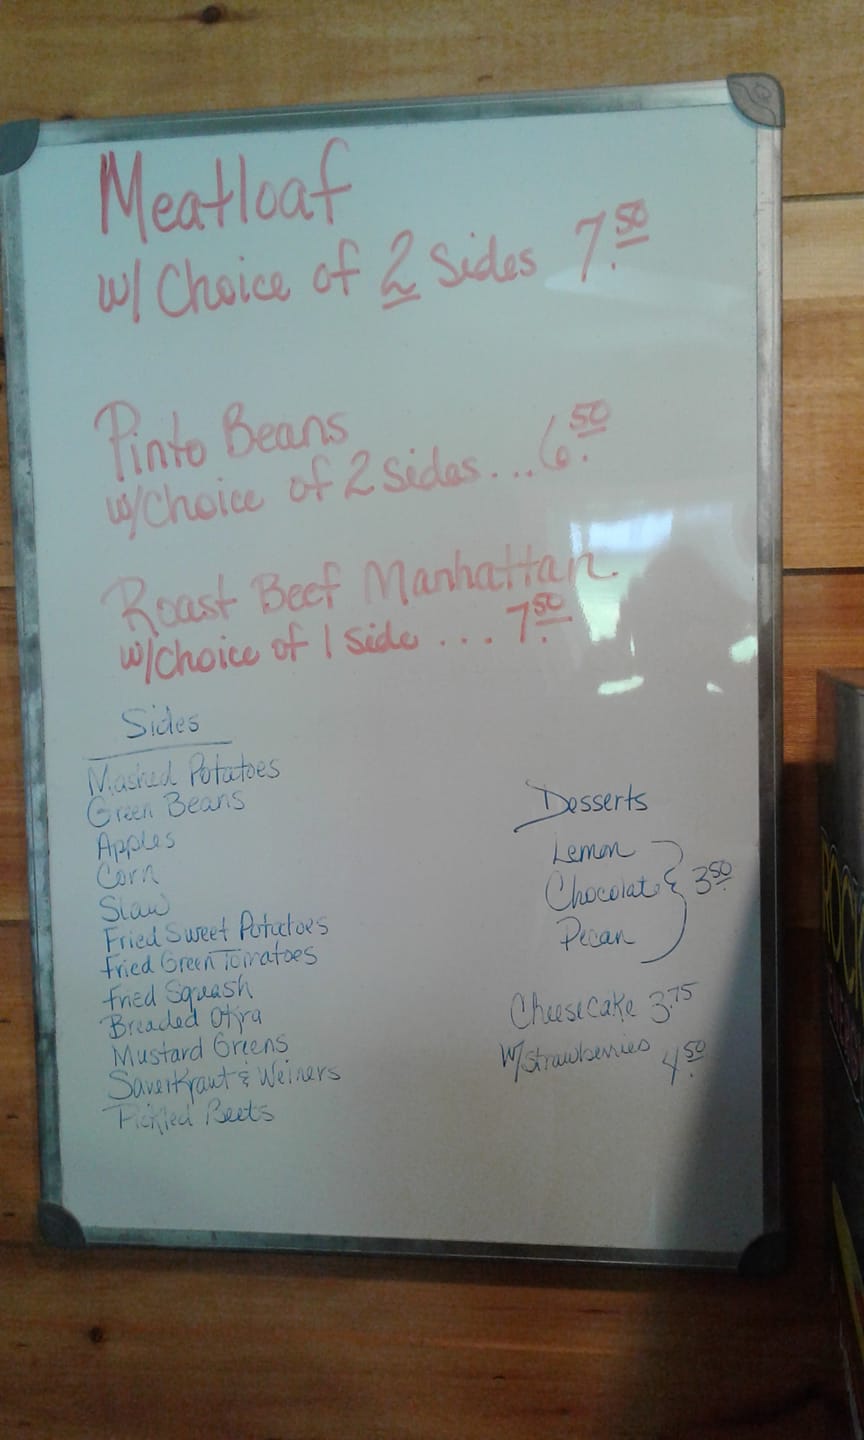 Meatloaf
w/ Choice of 2 Sides 7.50
Pinto Beans
w/Choice of 2 Sides...6.50
Roast Beef Manhattan
w/Choice of 1 Side ... 7.50
Sides
Mashed Potatoes
Green Beans
Apples
Corn
Slaw
Fried Sweet Potatoes
Fried Green Tomatoes
Fried Squash
Breaded Okra
Mustard Greens
Sauerkraut & Weiners
Pickled Beets
Desserts
Lemon
Chocolate 3.50
Pecan
Cheesecake 3.75
W/strawberries 4.50
ROCK